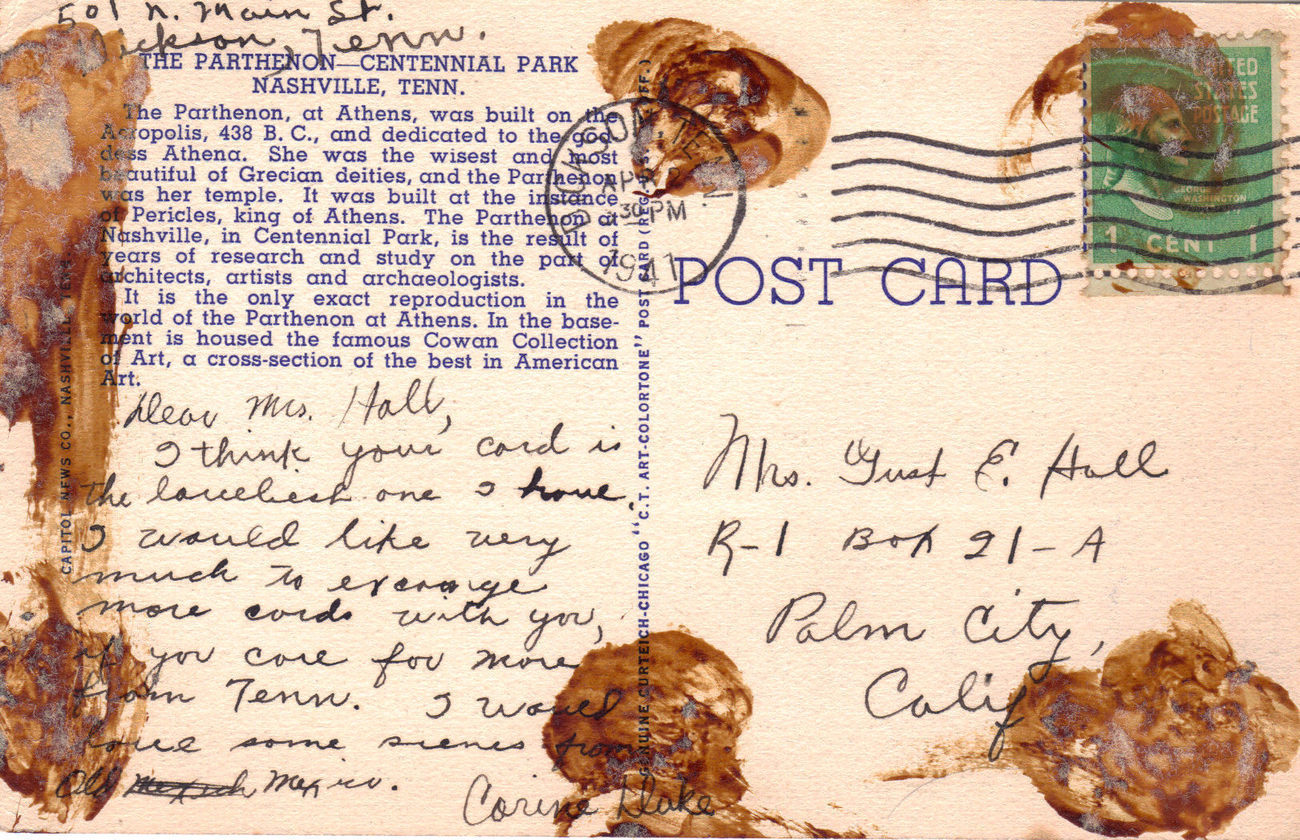 501 N. Main St.
Dickson, Tenn.
THE PARTHENON—CENTENNIAL PARK
NASHVILLE, TENN.
The Parthenon, at Athens, was built on the
Acropolis, 438 B. C., and dedicated to the god-
dess Athena. She was the wisest and most
beautiful of Grecian deities, and the Parthenon
was her temple. It was built at the instance
of Pericles, king of Athens. The Parthenon at
Nashville, in Centennial Park, is the result of
years of research and study on the part of
architects, artists and archaeologists.
It is the only exact reproduction in the
world of the Parthenon at Athens. In the base-
ment is housed the famous Cowan Collection
of Art, a cross-section of the best in American
Art.
Dear Mrs. Hall,
I think your card is
the loveliest one I have.
I would like very
much to exchange
more cards with you,
if you care for more
from Tenn. I would
love some scenes from
Old Mexico.
Corine Duke
CAPITOL NEWS CO., NASHVILLE, TENN.
GENUINE CURTEICH-CHICAGO "C.T. ART-COLORTONE" POST CARD (REG. U.S. PAT. OFF.)
DICKSON, TENN.
APR
30 PM
1941
UNITED
STATES
POSTAGE
WASHINGTON
1 CENT 1
POST CARD
Mrs. Gust E. Hall
R-1 Box 21-A
Palm City,
Calif